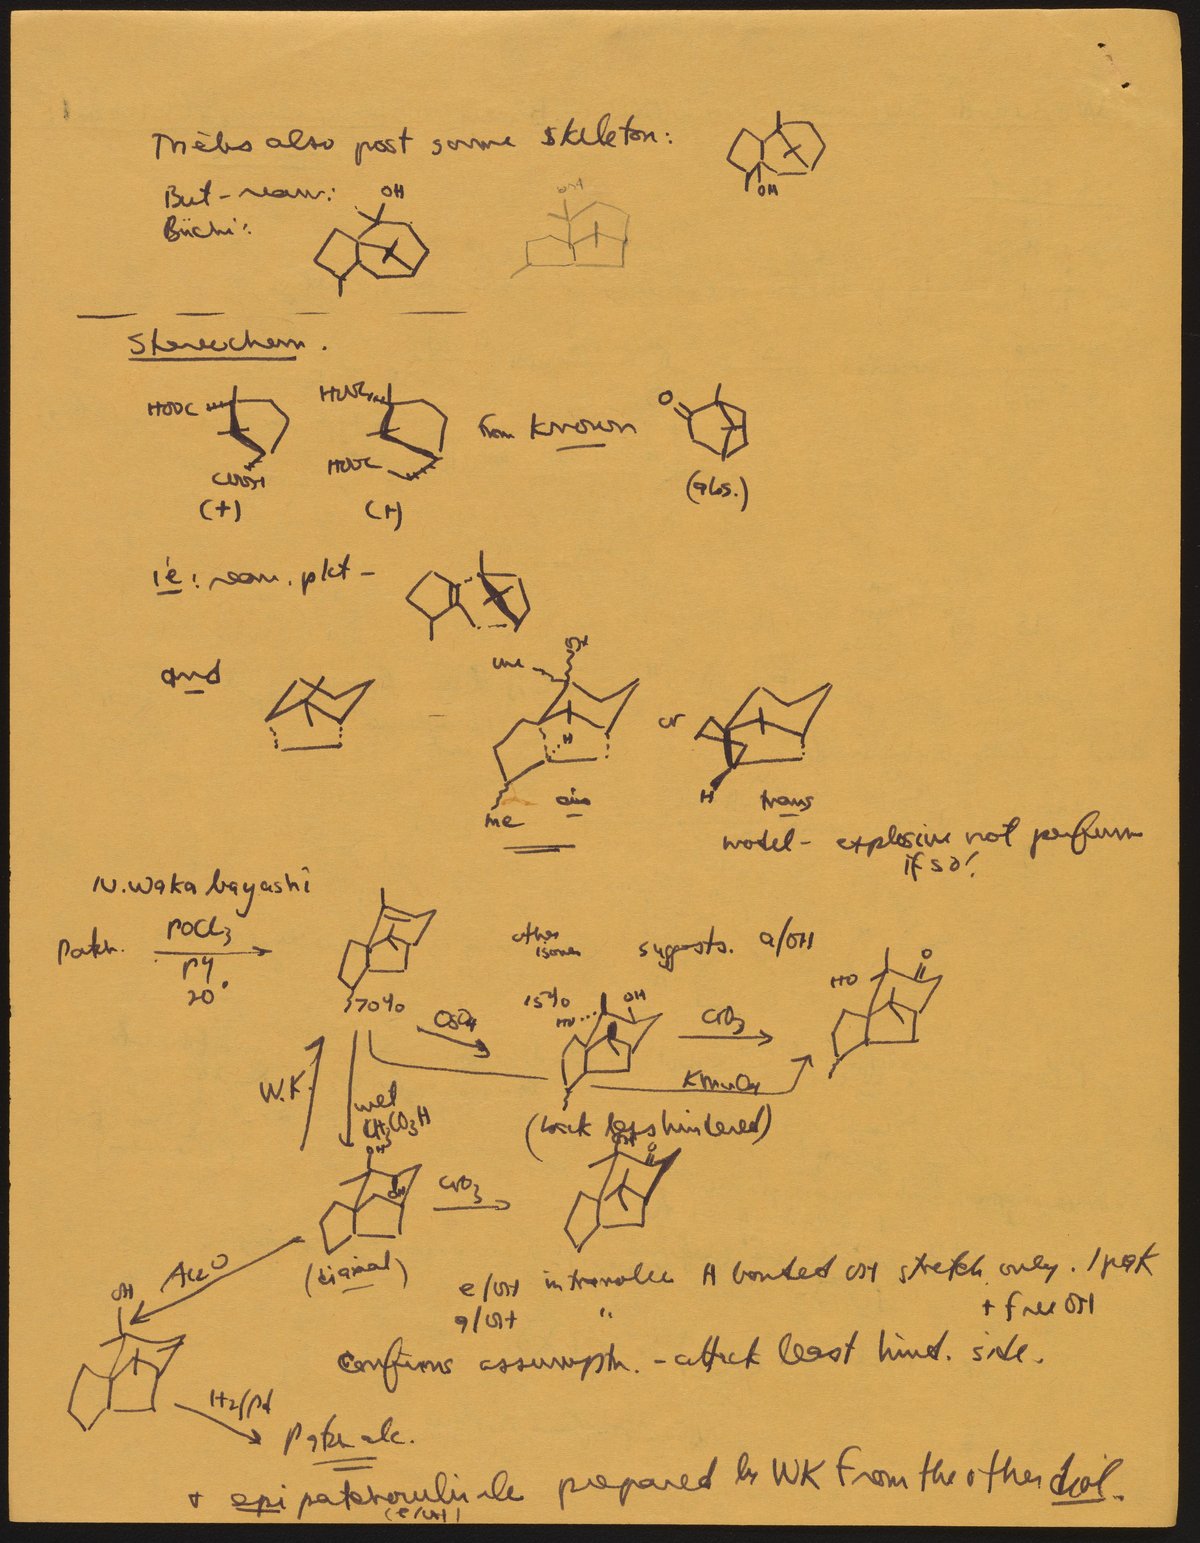 Trèbs also post same skeleton:
OH
But - rearr:
OH
Büchi:
Stereochem.
HOOC
COOH
(+)
HOOC
HOOC
(+)
from known
O
(abs.)
ie: rearr. pkt -
and
me
OH
H
me
cis
or
H
trans
model - explosive not perfume
if so!
N. Wakabayashi
Patch.
POCl3
py
20°
>70%
other
isomer
15%
suggests. a/OH
OsO4
HO
OH
CrO3
KMnO4
HO
O
(back less hindered)
W.K.
wet
CH3CO3H
OH
OH
(diaxial)
CrO3
OH
O
e/OH intramolec H bonded OH stretch only. 1 peak
a/OH " + free OH
Confirms assumptn. - attack least hind. side.
Ac2O
OH
H2/Pd
Patch alc.
+ epi patchouli alc prepared by WK from the other diol.
(e/OH)